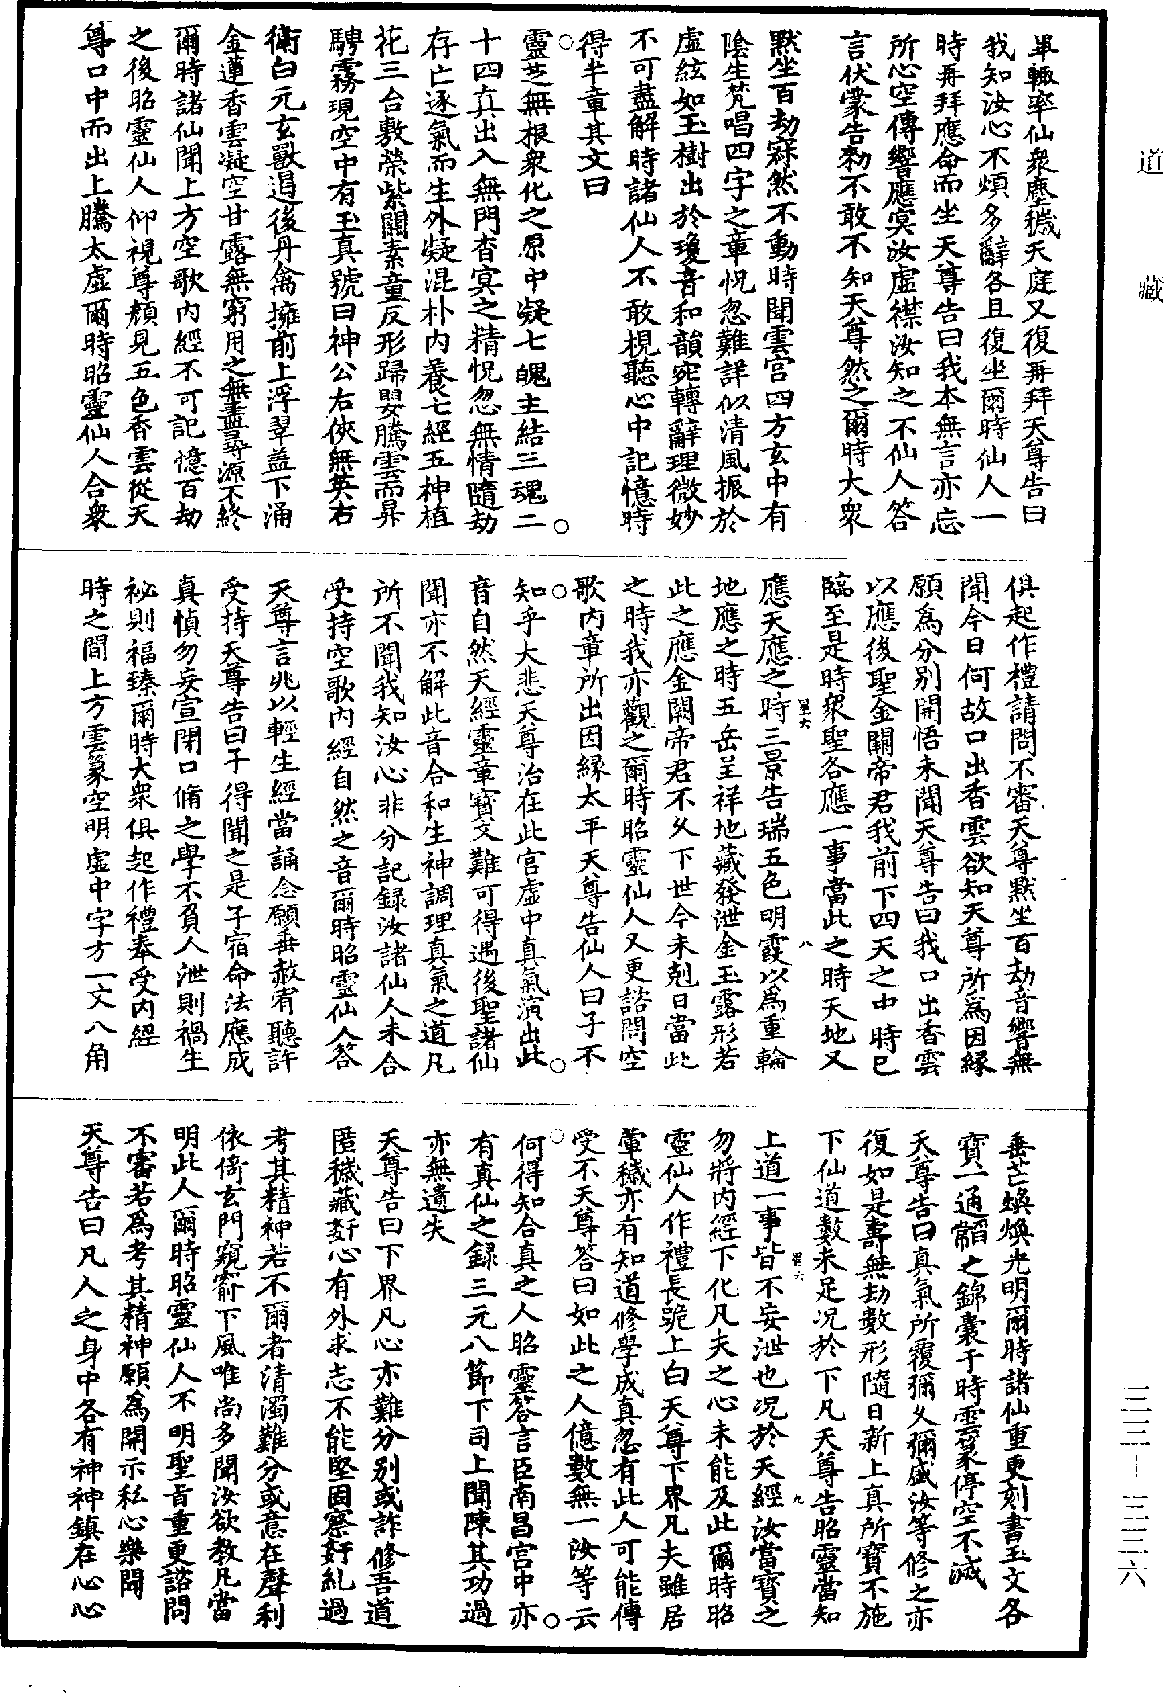 道藏
卑輙率仙衆塵穢天庭又復再拜天尊告曰
我知汝心不煩多辭各且復坐爾時仙人一
時再拜應命而坐天尊告曰我本無言亦忘
所心空傳響應冥汝虛襟汝知之不仙人答
言伏蒙告勑不敢不知天尊然之爾時大衆
默坐百劫寂然不動時聞雲宫四方玄中有
陰生梵唱四字之章怳忽難詳似清風振於
虛絃如玉樹出於瓊音和韻宛轉辭理微妙
不可盡解時諸仙人不敢視聽心中記憶時
得半章其文曰
靈芝無根衆化之原中凝七魄主結三魂二
十四真出入無門杳冥之精怳忽無情隨劫
存亡逐氣而生外凝混朴内養七經五神植
花三台敷榮紫闕素童反形歸嬰騰雲而昇
騁霧現空中有玉真號曰神公右俠無英右
衛白元玄獸追後丹禽擁前上浮翠蓋下涌
金蓮香雲凝空甘露無窮用之無盡尋源不終
爾時諸仙聞上方空歌内經不可記憶百劫
之後昭靈仙人仰視尊顏見五色香雲從天
尊口中而出上騰太虛爾時昭靈仙人合衆
俱起作禮請問不審天尊黙坐百劫音響無
聞今日何故口出香雲欲知天尊所爲因縁
願爲分别開悟未聞天尊告曰我口出香雲
以應後聖金闕帝君我前下四天之中時已
臨至是時衆聖各應一事當此之時天地又
應天應之時三景告瑞五色明霞以爲重輪
地應之時五岳呈祥地藏發泄金玉露形若
此之應金闕帝君不乆下世今未剋日當此
之時我亦觀之爾時昭靈仙人又更諮問空
歌内章所出因縁太平天尊告仙人曰子不
知乎大悲天尊治在此宫虛中真氣演出此
音自然天經靈章寶文難可得遇後聖諸仙
聞亦不解此音合和生神調理真氣之道凡
所不聞我知汝心非分記録汝諸仙人未合
受持空歌内經自然之音爾時昭靈仙人答
天尊言兆以輕生經當誦念願垂赦宥聽許
受持天尊告曰子得聞之是子宿命法應成
真慎勿妄宣閉口脩之學不負人泄則禍生
祕則福臻爾時大衆俱起作禮奉受内經
時之間上方雲篆空明虛中字方一丈八角
垂芒煥煥光明爾時諸仙重更刻書玉文各
寶一通韜之錦囊于時雲篆停空不滅
天尊告曰真氣所覆彌乆彌盛汝等修之亦
復如是壽無劫數形隨日新上真所寶不施
下仙道數未足况於下凡天尊告昭靈當知
上道一事皆不妄泄也况於天經汝當寶之
勿將内經下化凡夫之心未能及此爾時昭
靈仙人作禮長跪上白天尊下界凡夫雖居
葷穢亦有知道修學成真忽有此人可能傳
受不天尊答曰如此之人億數無一汝等云
何得知合真之人昭靈答言臣南昌宫中亦
有真仙之録三元八節下司上聞陳其功過
亦無遺失
天尊告曰下界凡心亦難分别或詐修吾道
匿穢藏奸心有外求志不能堅固察奸糺過
考其精神若不爾者清濁難分或意在聲利
依倚玄門窺窬下風唯尚多聞汝欲教凡當
明此人爾時昭靈仙人不明聖旨重更諮問
不審若爲考其精神願爲開示私心樂聞
天尊告曰凡人之身中各有神神鎮在心心
三三－三三六